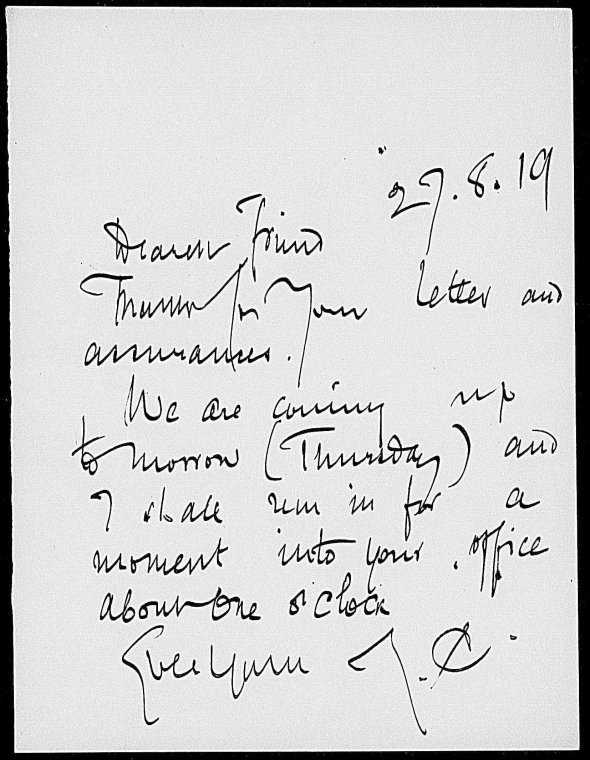 27.8.19
Dearest Friend
Thanks for your letter and
assurances.
We are coming up
tomorrow (Thursday) and
I shall run in for a
moment into your office
about one o'clock
Ever yours J.C.